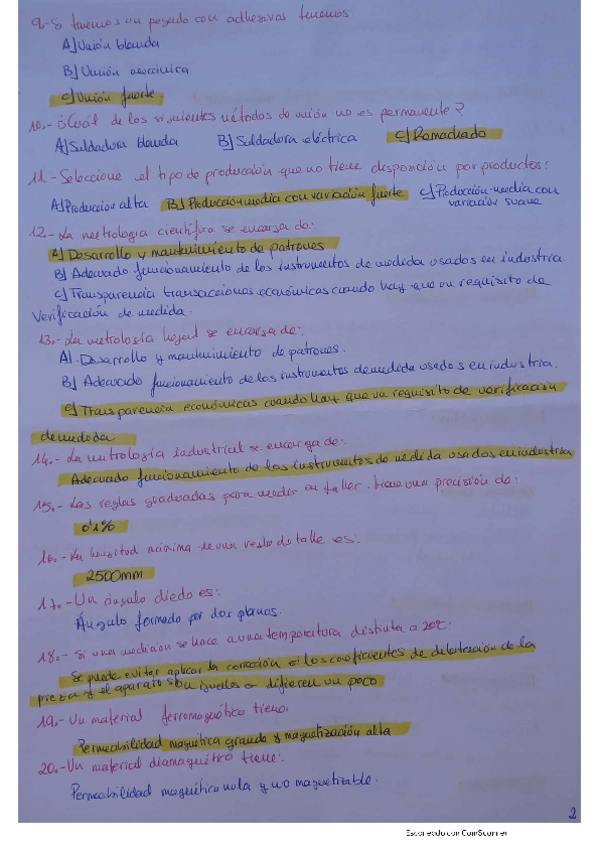 9.- Si tenemos un pegado con adhesivas tenemos
A) Unión blanda
B) Unión mecánica
C) Unión fuerte.
10.- ¿Cuál de los siguientes métodos de unión no es permanente?
A) Soldadura blanda B) Soldadura eléctrica C) Remachado
11.- Seleccione el tipo de producción que no tiene disposición por productos:
A) Producción alta B) Producción media con variación fuerte C) Producción media con
variación suave
12.- La metrología científica se encarga de:
A) Desarrollo y mantenimiento de patrones
B) Adecuado funcionamiento de los instrumentos de medida usados en industria.
C) Transparencia transacciones económicas cuando hay que un requisito de
verificación de medida.
13.- La metrología legal se encarga de:
A). Desarrollo y mantenimiento de patrones.
B) Adecuado funcionamiento de los instrumentos de medida usados en industria.
C) Transparencia económicas cuando hay que un requisito de verificación
de medida
14.- La metrología industrial se encarga de:
Adecuado funcionamiento de los instrumentos de medida usados en industria
15.- Las reglas graduadas para medir en taller tiene una precisión de:
0'1%
16.- La longitud máxima de una regla de taller es:
2500mm
17.- Un ángulo diedo es:
Ángulo formado por dos planos.
18.- Si una medición se hace a una temperatura distinta a 20ºC:
Se puede evitar aplicar la corrección si los coeficientes de dilatación de la
pieza y el aparato son iguales o difieren un poco
19.- Un material ferromagnético tiene:
Permeabilidad magnética grande y magnetización alta
20.- Un material diamagnético tiene:
Permeabilidad magnética nula y no magnetizable.
2
Escaneado con CamScanner